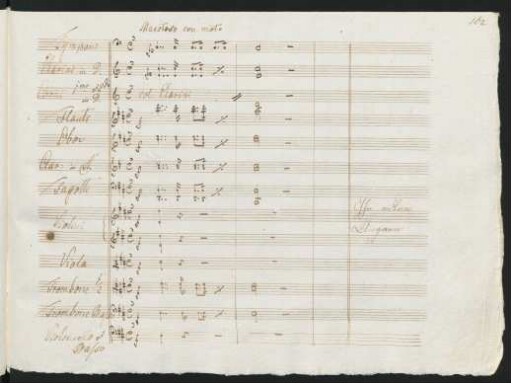 Maestoso con moto
162
Tympani
Clarini in D
Corni in D
col Clarini
Flauti
Oboi
Clar: in A
Fagotti
Violini
Viola
Tromboni 1/2
Trombone Basso
Violoncello et
Basso